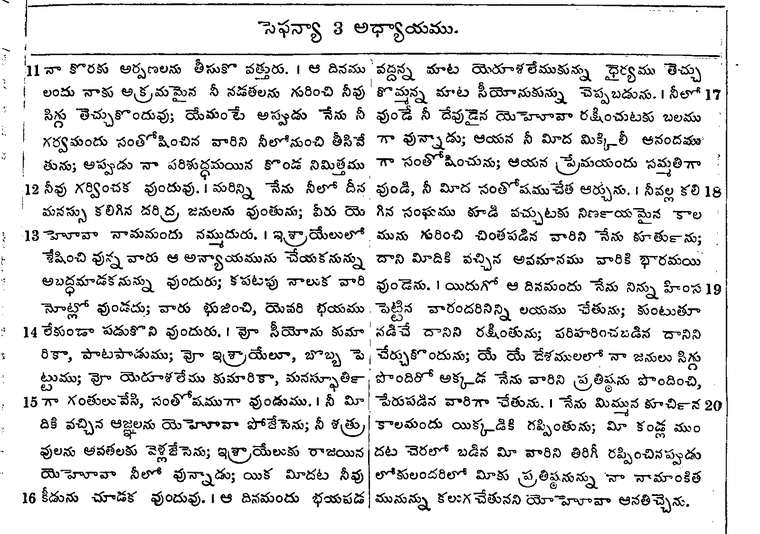 సెఫన్యా 3 అధ్యాయము.
11 నా కొరకు అర్పణలను తీసుకొ వత్తురు. । ఆ దినము
లందు నాకు అక్రమమైన నీ నడతలను గురించి నీవు
సిగ్గు తెచ్చుకొందువు; యేమంటే అప్పుడు నేను నీ
గర్వమందు సంతోషించిన వారిని నీలోనుంచి తీసివే
తును; అప్పుడు నా పరిశుద్ధమయిన కొండ నిమిత్తము
12 నీవు గర్వించక వుందువు. । మరిన్ని నేను నీలో దీన
మనస్సు కలిగిన దరిద్ర జనులను వుంతును; వీరు యె
13 హెూవా నామమందు నమ్ముదురు. । ఇశ్రాయేలులో
శేషించి వున్న వారు ఆ అన్యాయమును చేయకనున్ను
అబద్ధమాడకనున్ను వుందురు; కపటపు నాలుక వారి
నోట్లో వుండదు; వారు భుజించి, యెవరి భయము
14 లేకుండా పడుకొని వుందురు. । వో సీయోను కుమా
రికా, పాటపాడుము; వో ఇశ్రాయేలూ, బొబ్బ పె
ట్టుము; వో యెరూశలేము కుమారికా, మనస్ఫూతిก
15 గా గంతులువేసి, సంతోషముగా వుండుము. । నీ మీ
దికి వచ్చిన ఆజ్ఞలను యెహెూవా పోజేసెను; నీ శత్రు
వులను అవతలకు వెళ్లజేసెను; ఇశ్రాయేలుకు రాజయిన
యెహెూవా నీలో వున్నాడు; యిక మీదట నీవు
16 కీడును చూడక వుందువు. । ఆ దినమందు భయపడ
వద్దన్న మాట యెరూశలేముకున్ను ధైర్యము తెచ్చు
కొమ్మన్న మాట సీయోనుకున్ను చెప్పబడును. । నీలో 17
వుండే నీ దేవుడైన యెహెూవా రక్షించుటకు బలము
గా వున్నాడు; ఆయన నీ మీద మిక్కిలీ ఆనందము
గా సంతోషించును; ఆయన ప్రేమయందు సమ్మతిగా
వుండి, నీ మీద సంతోషముచేత ఆర్చును. । నీవల్ల కలి 18
గిన సంఘము కూడి వచ్చుటకు నిణ౯యమైన కాల
మును గురించి చింతపడిన వారిని నేను కూతు౯ను;
దాని మీదికి వచ్చిన అవమానము వారికి భారమయి
వుండెను. । యిదుగో ఆ దినమందు నేను నిన్ను హింస 19
పెట్టిన వారందరినిన్ని లయము చేతును; కుంటుతూ
నడిచే దానిని రక్షింతును; పరిహరించబడిన దానిని
చేర్చుకొందును; యే యే దేశములలో నా జనులు సిగ్గు
పొందిరో అక్కడ నేను వారిని ప్రతిష్ఠను పొందించి,
పేరుపడిన వారిగా చేతును. । నేను మిమ్మున కూచి౯న 20
కాలమందు యిక్కడికి రప్పింతును; మీ కండ్ల ముం
దట చెరలో బడిన మీ వారిని తిరిగీ రప్పించినప్పుడు
లోకులందరిలో మీకు ప్రతిష్ఠనున్ను నా నామాంకిత
మునున్ను కలుగచేతునని యోహెూవా ఆనతిచ్చెను.